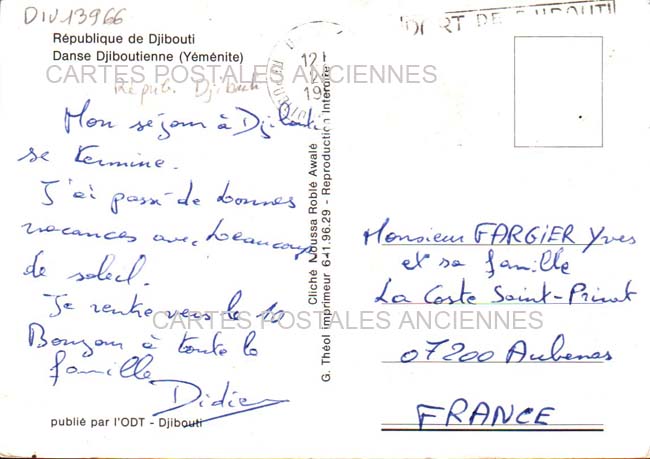 DIV13966
République de Djibouti
Danse Djiboutienne (Yéménite)
CARTES POSTALES ANCIENNES
Répub. Djibouti
Mon séjour à Djibouti
se termine.
J'ai passé de bonnes
vacances avec beaucoup
de soleil.
Je rentre vers le 10
Bonjour à toute la
famille
Didier
publié par l'ODT - Djibouti
G. Théol Imprimeur 641.96.29 - Reproduction interdite
Cliché Moussa Roblé Awalé
DE DJIBOUTI
12
19
Monsieur FARGIER Yves
et sa famille
La Coste Saint-Privat
07200 Aubenas
FRANCE
CARTES POSTALES ANCIENNES